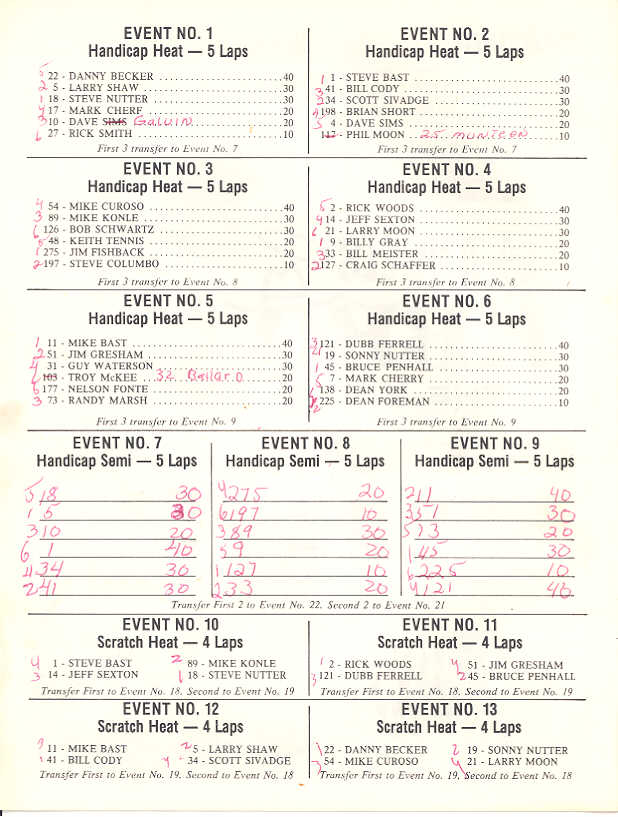 EVENT NO. 1
Handicap Heat — 5 Laps
5 22 - DANNY BECKER ........................ 40
2 5 - LARRY SHAW ........................ 30
1 18 - STEVE NUTTER ........................ 30
4 17 - MARK CHERF ........................ 20
3 10 - DAVE SIMS Galvin ........................ 20
6 27 - RICK SMITH ........................ 10
First 3 transfer to Event No. 7
EVENT NO. 2
Handicap Heat — 5 Laps
1 1 - STEVE BAST ........................ 40
3 41 - BILL CODY ........................ 30
2 34 - SCOTT SIVADGE ........................ 30
4 198 - BRIAN SHORT ........................ 20
5 4 - DAVE SIMS ........................ 20
117 - PHIL MOON ... 25 MUNTREN ........ 10
First 3 transfer to Event No. 7
EVENT NO. 3
Handicap Heat — 5 Laps
4 54 - MIKE CUROSO ........................ 40
3 89 - MIKE KONLE ........................ 30
6 126 - BOB SCHWARTZ ........................ 30
5 48 - KEITH TENNIS ........................ 20
1 275 - JIM FISHBACK ........................ 20
2 197 - STEVE COLUMBO ........................ 10
First 3 transfer to Event No. 8
EVENT NO. 4
Handicap Heat — 5 Laps
5 2 - RICK WOODS ........................ 40
4 14 - JEFF SEXTON ........................ 30
6 21 - LARRY MOON ........................ 30
1 9 - BILLY GRAY ........................ 20
3 33 - BILL MEISTER ........................ 20
2 127 - CRAIG SCHAFFER ........................ 10
First 3 transfer to Event No. 8
EVENT NO. 5
Handicap Heat — 5 Laps
1 11 - MIKE BAST ........................ 40
2 51 - JIM GRESHAM ........................ 30
4 31 - GUY WATERSON ........................ 30
103 - TROY McKEE ... 32 Bailard ........ 20
6 177 - NELSON FONTE ........................ 20
3 73 - RANDY MARSH ........................ 20
First 3 transfer to Event No. 9
EVENT NO. 6
Handicap Heat — 5 Laps
3 121 - DUBB FERRELL ........................ 40
19 - SONNY NUTTER ........................ 30
1 45 - BRUCE PENHALL ........................ 30
5 7 - MARK CHERRY ........................ 20
138 - DEAN YORK ........................ 20
2 225 - DEAN FOREMAN ........................ 10
First 3 transfer to Event No. 9
EVENT NO. 7
Handicap Semi — 5 Laps
5 18 30
1 5 30
3 10 20
6 1 40
4 34 30
2 41 30
EVENT NO. 8
Handicap Semi — 5 Laps
4 275 20
6 197 10
3 89 30
5 9 20
1 127 10
2 33 20
EVENT NO. 9
Handicap Semi — 5 Laps
2 11 40
3 51 30
5 73 20
1 45 30
6 225 10
4 121 40
Transfer First 2 to Event No. 22. Second 2 to Event No. 21
EVENT NO. 10
Scratch Heat — 4 Laps
4 1 - STEVE BAST 2 89 - MIKE KONLE
3 14 - JEFF SEXTON 1 18 - STEVE NUTTER
Transfer First to Event No. 18. Second to Event No. 19
EVENT NO. 11
Scratch Heat — 4 Laps
1 2 - RICK WOODS 4 51 - JIM GRESHAM
3 121 - DUBB FERRELL 2 45 - BRUCE PENHALL
Transfer First to Event No. 18. Second to Event No. 19
EVENT NO. 12
Scratch Heat — 4 Laps
3 11 - MIKE BAST 2 5 - LARRY SHAW
1 41 - BILL CODY 4 34 - SCOTT SIVADGE
Transfer First to Event No. 19. Second to Event No. 18
EVENT NO. 13
Scratch Heat — 4 Laps
1 22 - DANNY BECKER 2 19 - SONNY NUTTER
3 54 - MIKE CUROSO 4 21 - LARRY MOON
Transfer First to Event No. 19. Second to Event No. 18